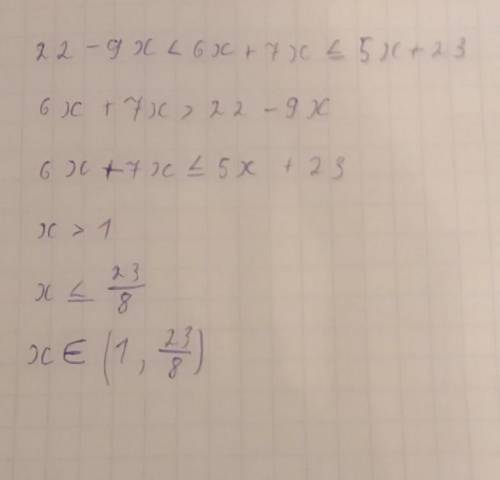 22 - 9x < 6x + 7x ≤ 5x + 23
6x + 7x > 22 - 9x
6x + 7x ≤ 5x + 23
x > 1
x ≤ 23/8
x ∈ (1, 23/8)